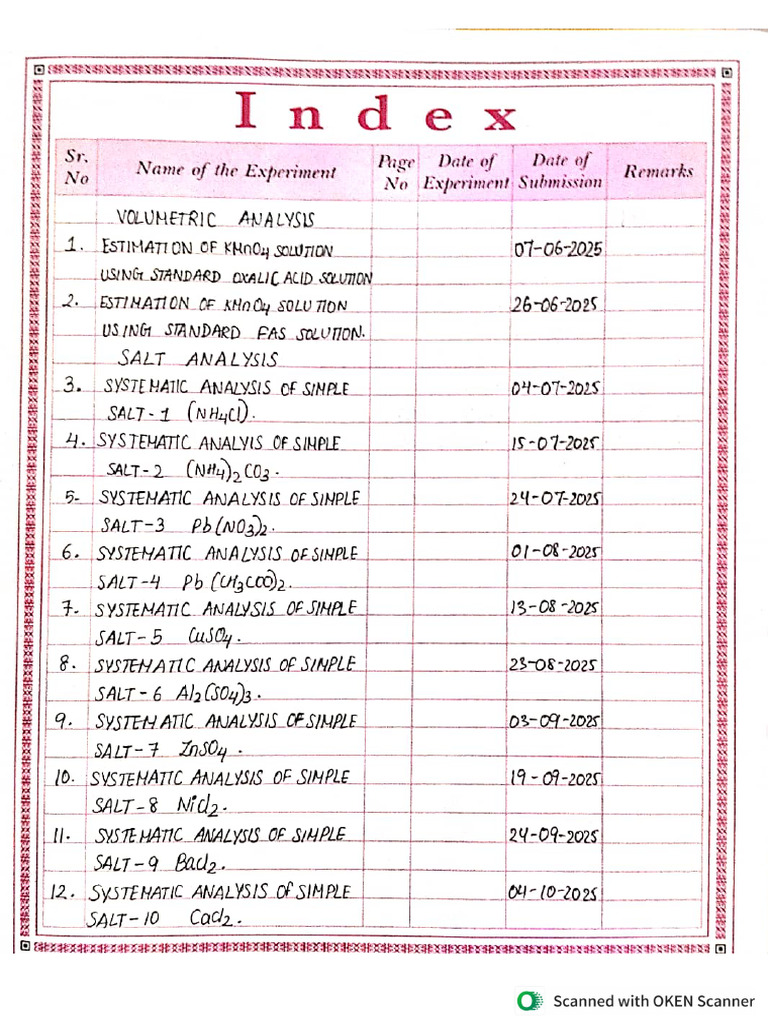 Index
Sr. No Name of the Experiment Page No Date of Experiment Date of Submission Remarks
VOLUMETRIC ANALYSIS
1. ESTIMATION OF KMnO4 SOLUTION 07-06-2025
USING STANDARD OXALIC ACID SOLUTION
2. ESTIMATION OF KMnO4 SOLUTION 26-06-2025
USING STANDARD FAS SOLUTION.
SALT ANALYSIS
3. SYSTEMATIC ANALYSIS OF SIMPLE 04-07-2025
SALT-1 (NH4Cl).
4. SYSTEMATIC ANALYIS OF SIMPLE 15-07-2025
SALT-2 (NH4)2CO3.
5- SYSTEMATIC ANALYSIS OF SIMPLE 24-07-2025
SALT-3 Pb(NO3)2.
6. SYSTEMATIC ANALYSIS OF SIMPLE 01-08-2025
SALT-4 Pb(CH3COO)2.
7. SYSTEMATIC ANALYSIS OF SIMPLE 13-08-2025
SALT-5 CuSO4.
8. SYSTEMATIC ANALYSIS OF SIMPLE 23-08-2025
SALT-6 Al2(SO4)3.
9. SYSTEMATIC ANALYSIS OF SIMPLE 03-09-2025
SALT-7 ZnSO4.
10. SYSTEMATIC ANALYSIS OF SIMPLE 19-09-2025
SALT-8 Nicl2.
11. SYSTEMATIC ANALYSIS OF SIMPLE 24-09-2025
SALT-9 Bacl2.
12. SYSTEMATIC ANALYSIS OF SIMPLE 04-10-2025
SALT-10 Cacl2.
Scanned with OKEN Scanner